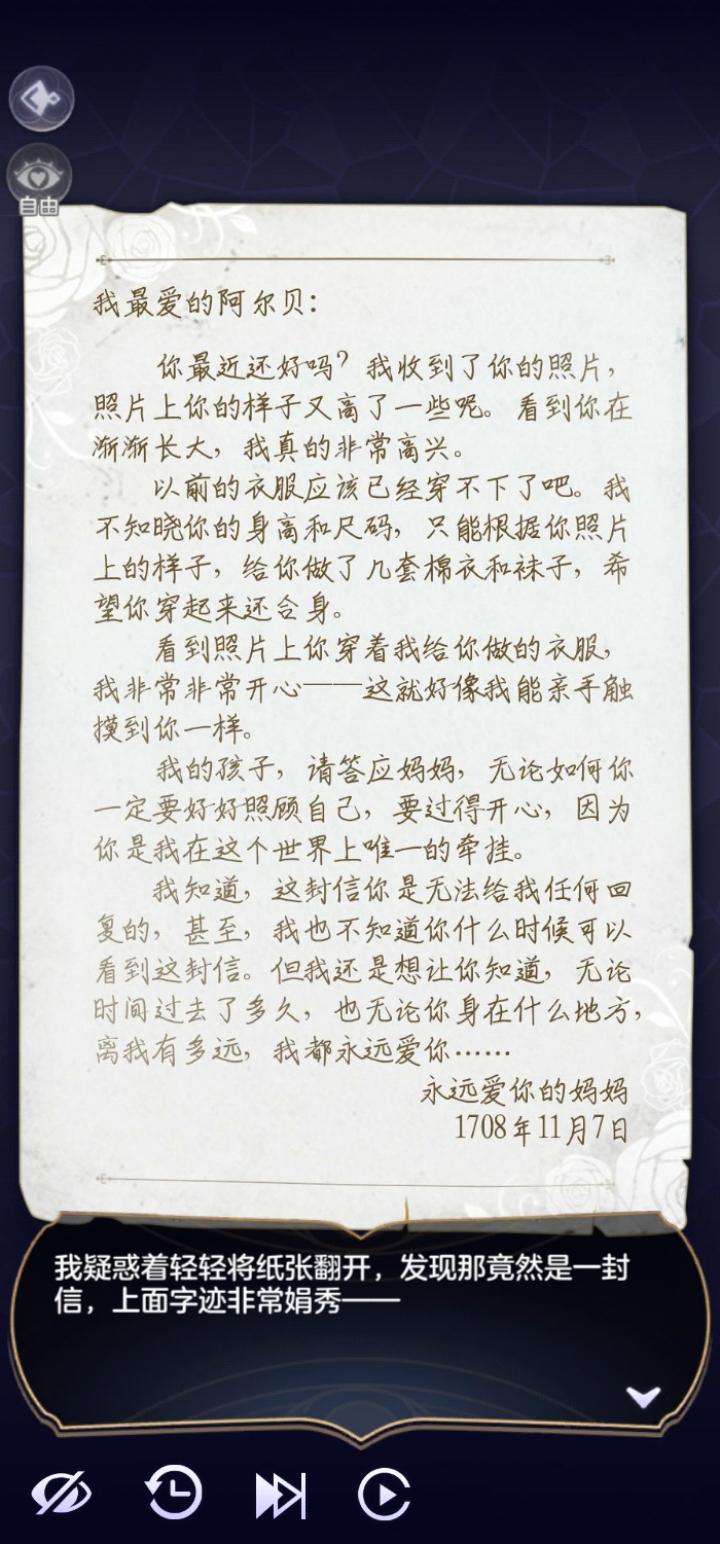 自由
我最爱的阿尔贝：
你最近还好吗？我收到了你的照片，
照片上你的样子又高了一些呢。看到你在
渐渐长大，我真的非常高兴。
以前的衣服应该已经穿不下了吧。我
不知晓你的身高和尺码，只能根据你照片
上的样子，给你做了几套棉衣和袜子，希
望你穿起来还合身。
看到照片上你穿着我给你做的衣服，
我非常非常开心——这就好像我能亲手触
摸到你一样。
我的孩子，请答应妈妈，无论如何你
一定要好好照顾自己，要过得开心，因为
你是我在这个世界上唯一的牵挂。
我知道，这封信你是无法给我任何回
复的，甚至，我也不知道你什么时候可以
看到这封信。但我还是想让你知道，无论
时间过去了多久，也无论你身在什么地方，
离我有多远，我都永远爱你……
永远爱你的妈妈
1708年11月7日
我疑惑着轻轻将纸张翻开，发现那竟然是一封
信，上面字迹非常娟秀——